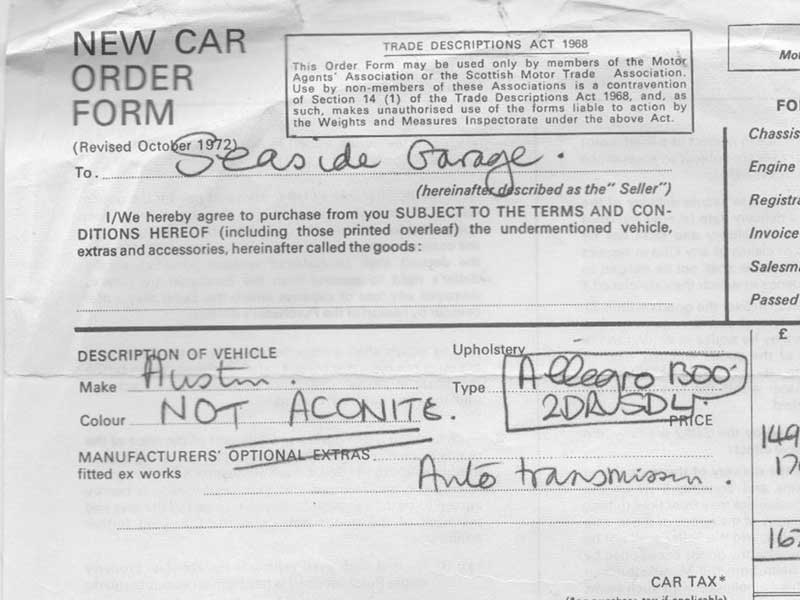 NEW CAR
ORDER
FORM
(Revised October 1972)
TRADE DESCRIPTIONS ACT 1968
This Order Form may be used only by members of the Motor
Agents' Association or the Scottish Motor Trade Association.
Use by non-members of these Associations is a contravention
of Section 14 (1) of the Trade Descriptions Act 1968, and, as
such, makes unauthorised use of the forms liable to action by
the Weights and Measures Inspectorate under the above Act.
To. Seaside Garage.
(hereinafter described as the" Seller")
I/We hereby agree to purchase from you SUBJECT TO THE TERMS AND CON-
DITIONS HEREOF (including those printed overleaf) the undermentioned vehicle,
extras and accessories, hereinafter called the goods:
DESCRIPTION OF VEHICLE
Upholstery
Make Austin.
Type Allegro 1300
2DR/SDL.
Colour NOT ACONITE.
PRICE
MANUFACTURERS' OPTIONAL EXTRAS
fitted ex works
Auto transmission.
CAR TAX*
Mot
FO
Chassis
Engine
Registra
Invoice
Salesma
Passed
£
149
17
167